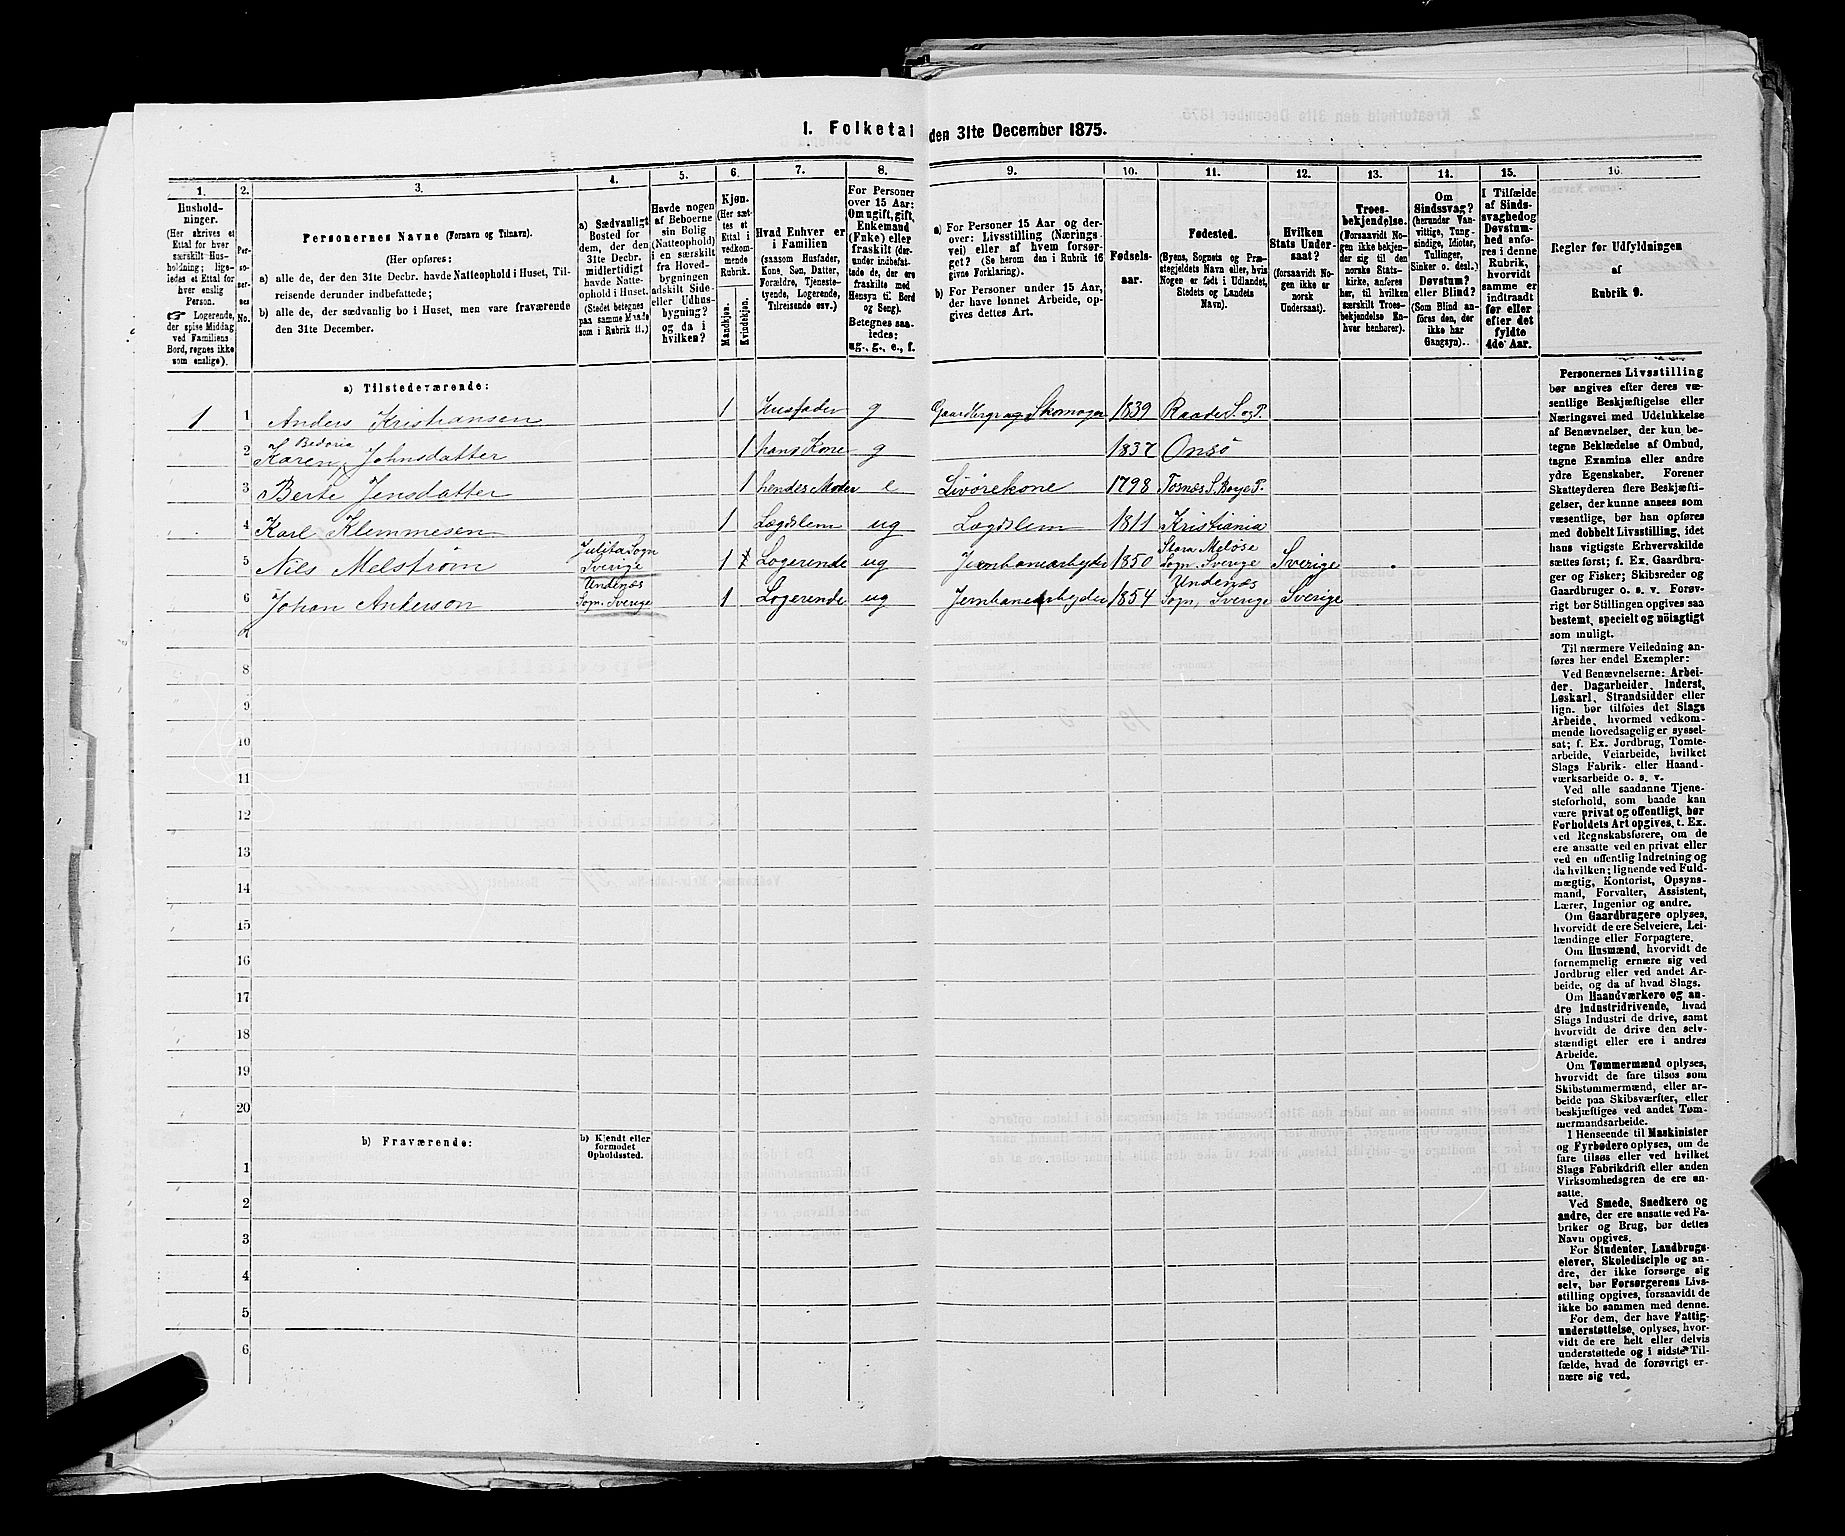 1. Folketal den 31te December 1875.
1. 2. 3. 4. 5. 6. 7. 8. 9. 10. 11. 12. 13. 14. 15. 16.
Hushold-
ninger.
(Her skrives et
Ettal for hver
særskilt Hus-
holdning; lige-
ledes et Ettal for
hver enslig
Person.
☞ Logerende,
der spise Middag
ved Familiens
Bord, regnes ikke
som enslige).
Per-
so-
ner-
nes
No.
Personernes Navne (Fornavn og Tilnavn).
(Her opføres:
a) alle de, der den 31te Decbr. havde Natteophold i Huset, Til-
reisende derunder indbefattede;
b) alle de, der sædvanlig bo i Huset, men vare fraværende
den 31te December.
a) Sædvanligt
Bosted for
dem, der den
31te Decbr.
midlertidigt
havde Natte-
ophold i Huset.
(Stedet betegnes
paa samme Maade
som i Rubrik 11.)
Havde nogen
af Beboerne
sin Bolig
(Natteophold)
i en særskilt
fra Hoved-
bygningen
adskilt Side-
eller Udhus-
bygning?
og da i
hvilken?
Kjøn.
(Her sæt-
tes et
Ettal i
vedkom-
mende
Rubrik.
Mandkjøn.
Kvindekjøn.
Hvad Enhver er
i Familien
(saasom Husfader,
Kone, Søn, Datter,
Forældre, Tjeneste-
tyende, Logerende,
Tilreisende osv.)
For Personer
over 15 Aar:
Om ugift, gift,
Enkemand
(Enke) eller
fraskilt (der-
under indbefat-
tede de, der ere
fraskilte med
Hensyn til Bord
og Seng).
Betegnes saa-
ledes:
ug., g., e., f.
a) For Personer 15 Aar og der-
over: Livsstilling (Nærings-
vei) eller af hvem forsør-
get? (Se herom den i Rubrik 16
givne Forklaring).
b) For Personer under 15 Aar,
der have lønnet Arbeide, op-
gives dettes Art.
Fødsels-
aar.
Fødested.
(Byens, Sognets og Præ-
stegjeldets Navn eller, hvis
Nogen er født i Udlandet,
Stedets og Landets
Navn).
Hvilken
Stats Under-
saat?
(forsaavidt No-
gen ikke er
norsk
Undersaat).
Troes-
bekjendelse.
(Forsaavidt No-
gen ikke bekjen-
der sig til den
norske Stats-
kirke, anføres
her, til hvilken
særskilt Troes-
bekjendelse En-
hver henhører).
Om
Sindssvag?
(herunder Van-
vittige, Tung-
sindige, Idioter,
Tullinger,
Sinker o. desl.)
Døvstum?
eller Blind?
(Som Blind an-
føres den, der
ikke har
Gangsyn).
I Tilfælde
af Sinds-
svaghed og
Døvstum-
hed anfø-
res i denne
Rubrik,
hvorvidt
samme er
indtraadt
før eller
efter det
fyldte
4de Aar.
Regler for Udfyldningen
af
Rubrik 9.
a) Tilstedeværende:
1 1 Anders Kristiansen 1 Husfader g Gaardbruger og Skomager 1839 Raade S. og P.
2 Karen Bedoria Johnsdatter 1 hans Kone g 1832 Onsö
3 Berte Jensdatter 1 hendes Moder e Livörekone 1798 Tosnæs S. Borge P.
4 Karl Klemmesen 1 Lægdslem ug Lægdslem 1811 Kristiania
5 Nils Melström Julita Sogn Sverige 1 Logerende ug Jernbanearbeider 1850 Stora Melöse Sogn. Sverige Sverige
6 Johan Anderson Undenæs Sogn. Sverige 1 Logerende ug Jernbanearbeider 1854 Undenæs Sogn, Sverige Sverige
7
8
9
10
11
12
13
14
15
16
17
18
19
20
b) Fraværende:
b) Kjendt eller
formodet
Opholdssted.
1
2
3
4
5
6
Personernes Livsstilling
bør angives efter deres væ-
sentlige Beskjæftigelse eller
Næringsvei med Udelukkelse
af Benævnelser, der kun be-
tegne Beklædelse af Ombud,
tagne Examina eller andre
ydre Egenskaber. Forener
Skatteyderen flere Beskjæfti-
gelser, der kunne ansees som
væsentlige, bør han opføres
med dobbelt Livsstilling, idet
hans vigtigste Erhvervskilde
sættes først; f. Ex. Gaardbru-
ger og Fisker; Skibsreder og
Gaardbruger o. s. v. Forøv-
rigt bør Stillingen opgives saa
bestemt, specielt og nöiagtigt
som muligt.
Til nærmere Veiledning an-
føres her endel Exempler:
Ved Benævnelserne: Arbei-
der, Dagarbeider, Inderst,
Løskarl, Strandsidder eller
lign. bør tilføies det Slags
Arbeide, hvormed vedkom-
mende hovedsagelig er syssel-
sat; f. Ex. Jordbrug, Tomte-
arbeide, Veiarbeide, hvilket
Slags Fabrik- eller Haand-
værksarbeide o. s. v.
Ved alle saadanne Tjene-
steforhold, som baade kan
være privat og offentligt, bør
Forholdets Art opgives, t. Ex.
ved Regnskabsførere, om de
ere ansatte ved en privat eller
ved en offentlig Indretning og
da hvilken; lignende ved Fuld-
mægtig, Kontorist, Opsyns-
mand, Forvalter, Assistent,
Lærer, Ingeniør og andre.
Om Gaardbrugere oplyses,
hvorvidt de ere Selveiere, Lei-
lændinge eller Forpagtere.
Om Husmænd, hvorvidt de
fornemmelig ernære sig ved
Jordbrug eller ved andet Ar-
beide, og da af hvad Slags.
Om Haandværkere og an-
dre Industridrivende, hvad
Slags Industri de drive, samt
hvorvidt de drive den selv-
stændigt eller ere i andres
Arbeide.
Om Tømmermænd oplyses,
hvorvidt de fare tilsøs som
Skibstømmermænd, eller ar-
beide paa Skibsværfter, eller
beskjæftiges ved andet Tøm-
mermandsarbeide.
I Henseende til Maskinister
og Fyrbødere oplyses, om de
fare tilsøs eller ved hvilket
Slags Fabrikdrift eller anden
Virksomhedsgren de ere an-
satte.
Ved Smede, Snedkere og
andre, der ere ansatte ved Fa-
briker og Brug, bør dettes
Navn opgives.
For Studenter, Landbrugs-
elever, Skoledisciple og an-
dre, der ikke forsørge sig
selv, bør Forsørgerens Livs-
stilling opgives, forsaavidt de
ikke bo sammen med denne.
For dem, der have Fattig-
understøttelse, oplyses, hvor-
vidt de ere helt eller delvis
understøttede og i sidste Til-
fælde, hvad de forøvrigt er-
nære sig ved.